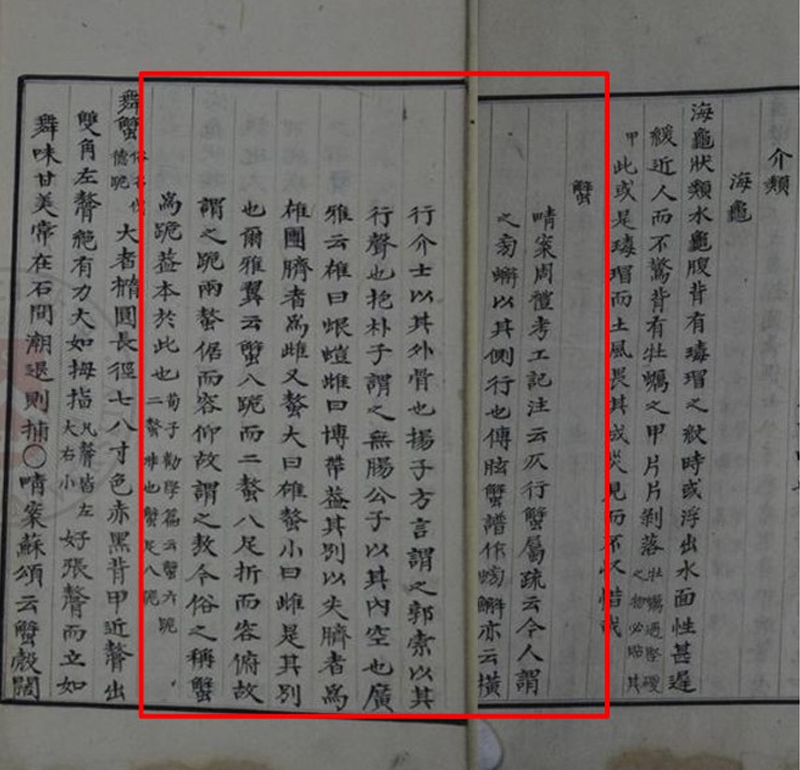 介類
海龜
海龜狀類水龜腹背有瑇瑁之紋時或浮出水面性甚遲
緩近人而不驚背有牡蠣之甲片片剝落牡蠣遇堅硬之物必貼其
甲此或是瑇瑁而土風畏其成災見而不以惜哉
蟹
晴案周禮考工記注云仄行蟹屬疏云今人謂
之螃蠏以其側行也傅肱蟹譜作螃蠏亦云橫
行介士以其外骨也揚子方言謂之郭索以其
行聲也抱朴子謂之無腸公子以其內空也廣
雅云雄曰蜋螘雌曰博帶葢其別以尖臍者為
雄團臍者為雌又螯大曰雄螯小曰雌是其別
也爾雅翼云蟹八跪而二螯八足折而容俯故
謂之跪兩螯倨而容仰故謂之敖今俗之稱蟹
為跪葢本於此也荀子勸學篇云蟹六跪二螯非也蟹足八跪
舞蟹俗名 大者橢圓長徑七八寸色赤黑背甲近螯出
雙角左螯絶有力大如拇指凡螯皆左大右小好張螯而立如
舞味甘美常在石間潮退則捕〇晴案蘇頌云蟹殼闊